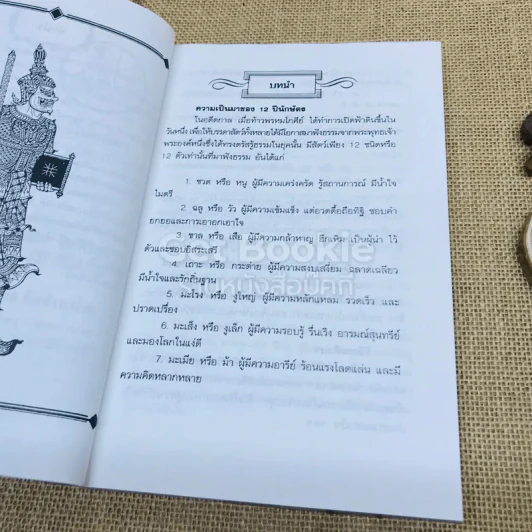 บทนำ
ความเป็นมาของ 12 ปีนักษัตร
ในอดีตกาล เมื่อท้าวพรหมโกสีย์ ได้ทำการเปิดฟ้าดินขึ้นใน
วันหนึ่ง เพื่อให้บรรดาสัตว์ทั้งหลายได้มีโอกาสมาฟังธรรมจากพระพุทธเจ้า
พระองค์หนึ่งซึ่งได้ทรงตรัสรู้ธรรมในยุคนั้น มีสัตว์เพียง 12 ชนิดหรือ
12 ตัวเท่านั้นที่มาฟังธรรม อันได้แก่
1. ชวด หรือ หนู ผู้มีความเคร่งครัด รู้สถานการณ์ มีน้ำใจ
ไมตรี
2. ฉลู หรือ วัว ผู้มีความเข้มแข็ง แต่อวดดื้อถือทิฐิ ชอบคำ
ยกยอและการเอาอกเอาใจ
3. ขาล หรือ เสือ ผู้มีความกล้าหาญ ฮึกเหิม เป็นผู้นำ ไว้
ตัวและชอบอิสระเสรี
4. เถาะ หรือ กระต่าย ผู้มีความสงบเสงี่ยม ฉลาดเฉลียว
มีน้ำใจและรักถิ่นฐาน
5. มะโรง หรือ งูใหญ่ ผู้มีความหลักแหลม รวดเร็ว และ
ปราดเปรื่อง
6. มะเส็ง หรือ งูเล็ก ผู้มีความรอบรู้ รื่นเริง อารมณ์สุนทรีย์
และมองโลกในแง่ดี
7. มะเมีย หรือ ม้า ผู้มีความอารีย์ ร้อนแรงโลดแล่น และมี
ความคิดหลากหลาย
Bookie
หนังสือมีคก